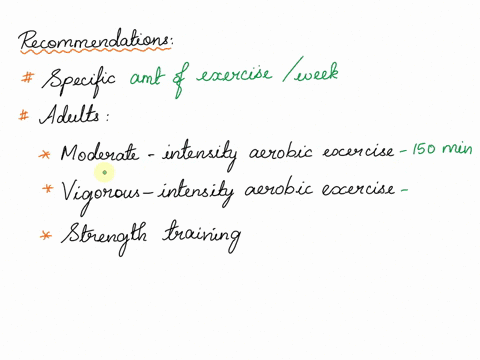 Recommendations:
# Specific amt of exercise /week
# Adults:
* Moderate - intensity aerobic exercise - 150 min
* Vigorous - intensity aerobic exercise -
* Strength training